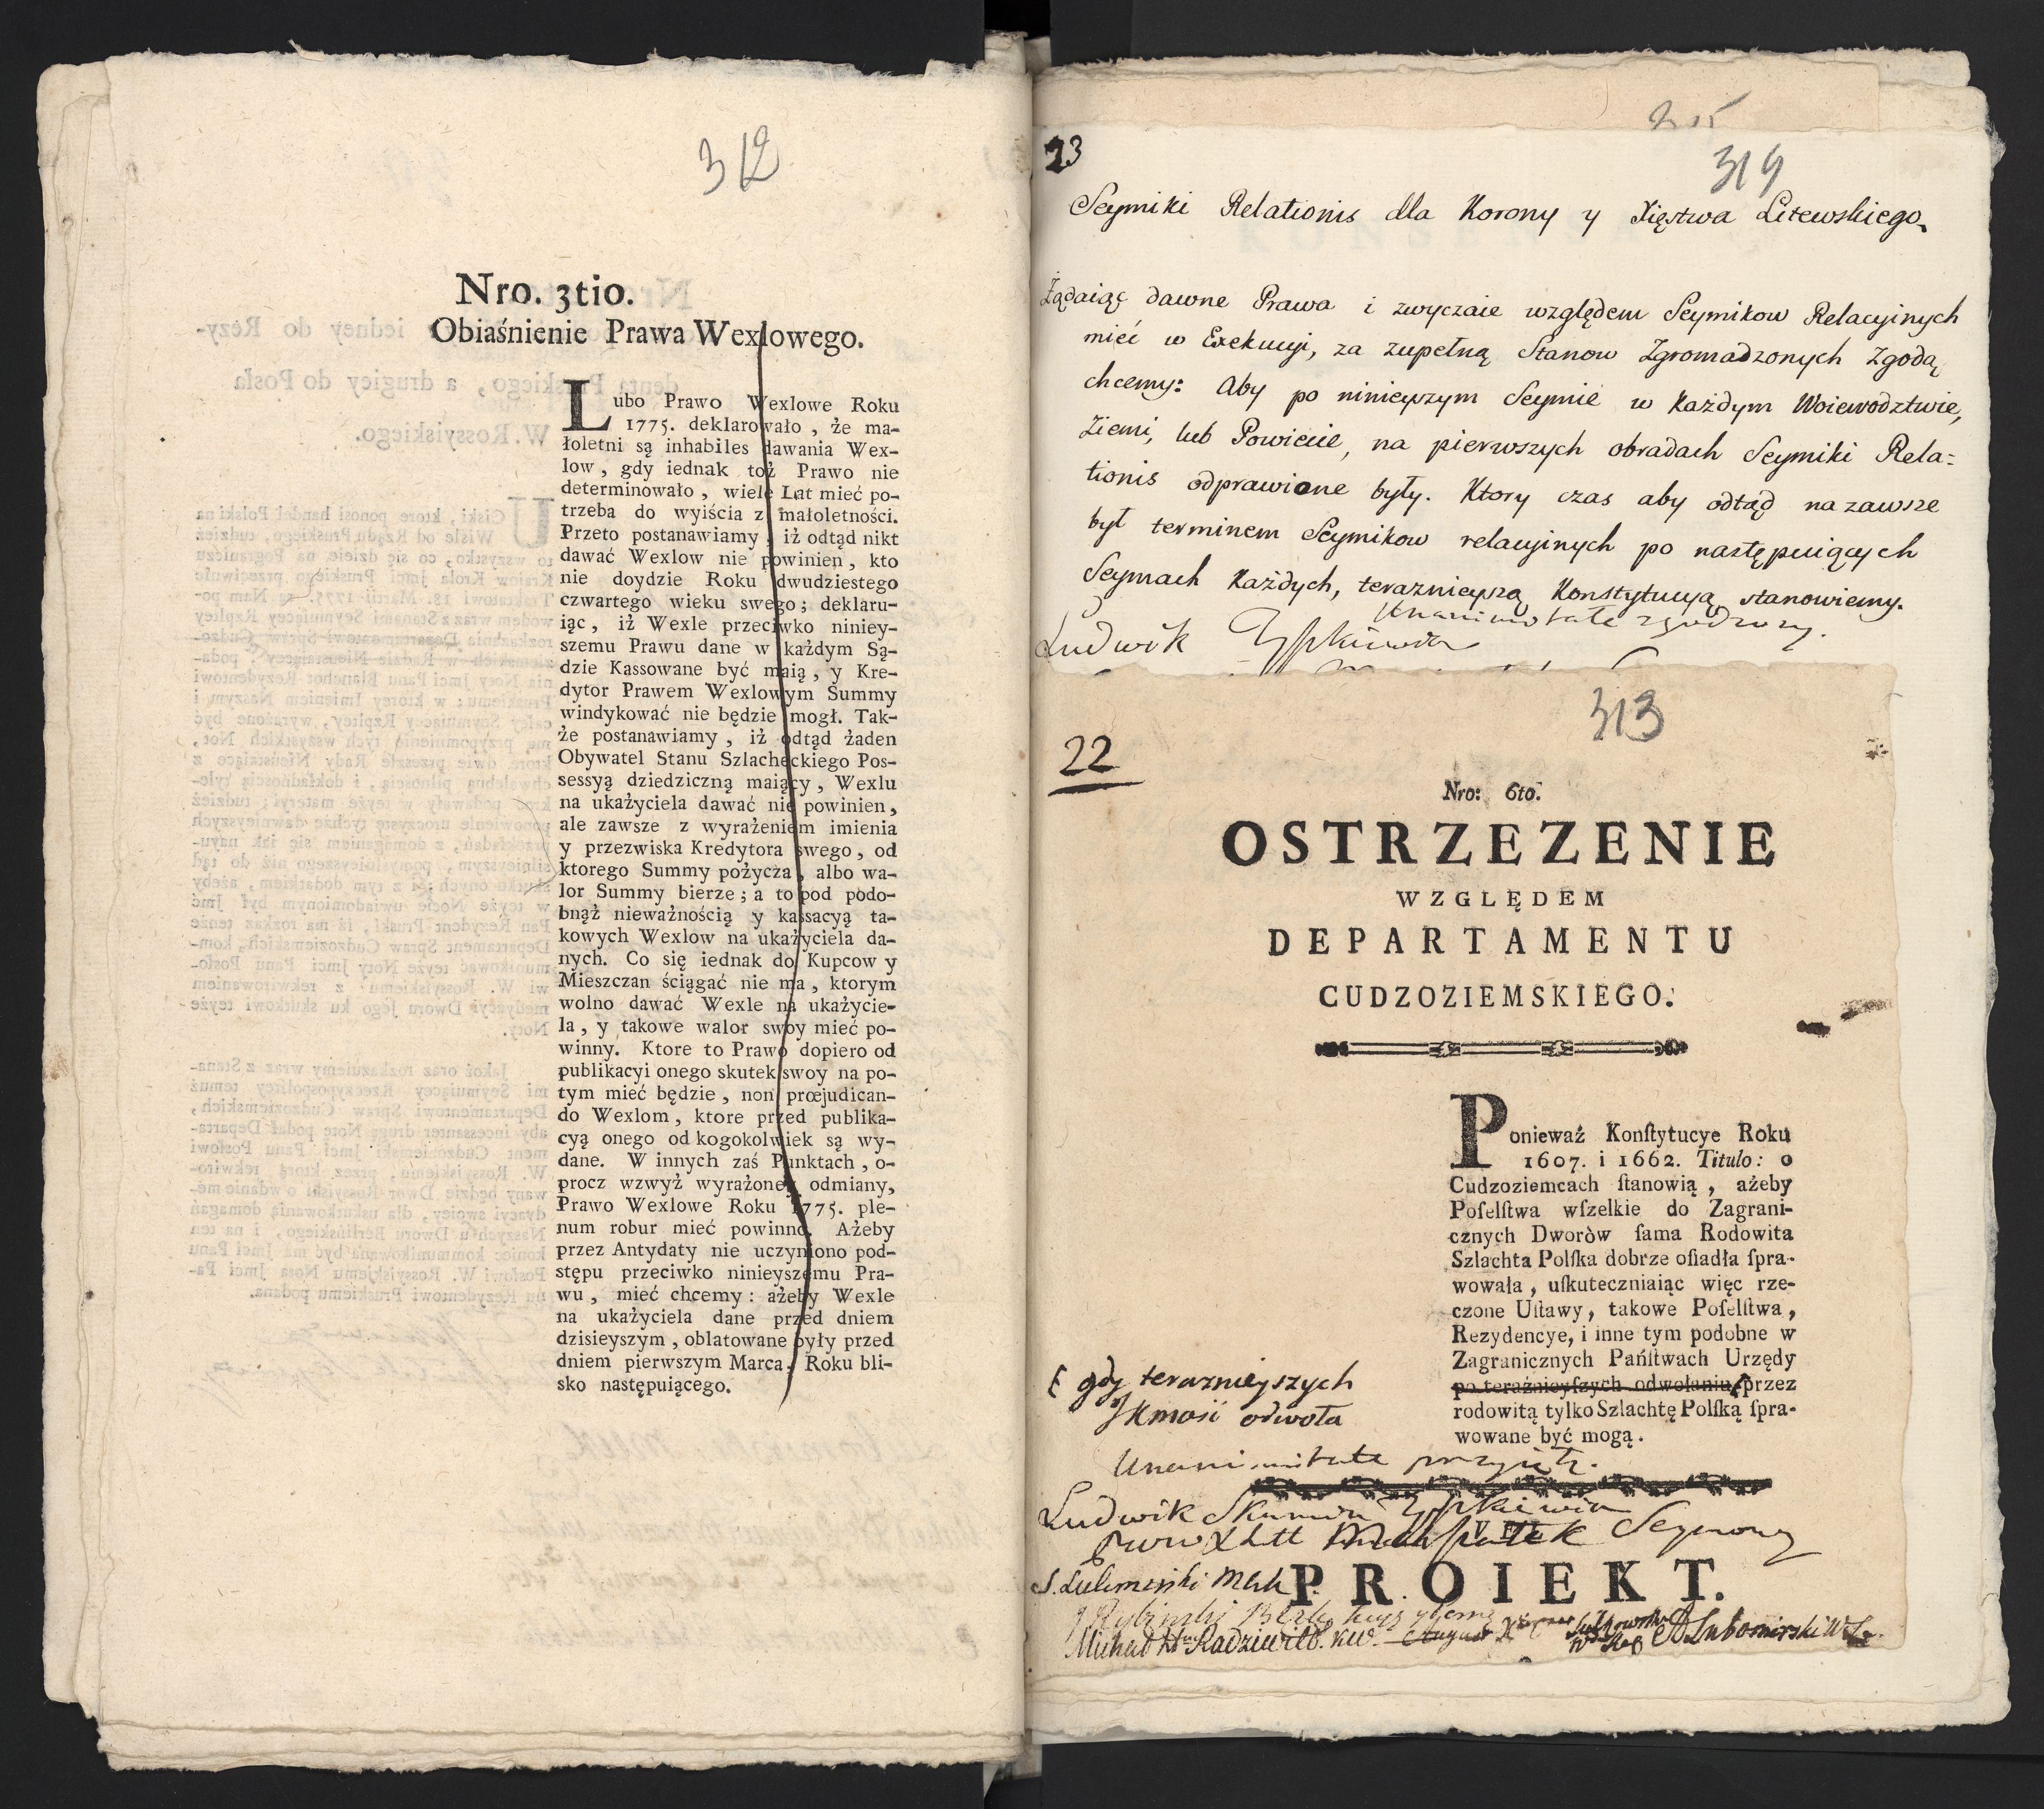 312
Nro. 3tio.
Obiaśnienie Prawa Wexlowego.
Lubo Prawo Wexlowe Roku
1775. deklarowało, że ma-
łoletni są inhabiles dawania Wex-
low, gdy iednak toż Prawo nie
determinowało, wiele Lat mieć po-
trzeba do wyiścia z małoletności.
Przeto postanawiamy, iż odtąd nikt
dawać Wexlow nie powinien, kto
nie doydzie Roku dwudziestego
czwartego wieku swego; deklaru-
iąc, iż Wexle przeciwko niniey-
szemu Prawu dane w każdym Są-
dzie Kassowane być maią, y Kre-
dytor Prawem Wexlowym Summy
windykować nie będzie mogł. Tak-
że postanawiamy, iż odtąd żaden
Obywatel Stanu Szlacheckiego Pos-
sessyą dziedziczną maiący, Wexlu
na ukażyciela dawać nie powinien,
ale zawsze z wyrażeniem imienia
y przezwiska Kredytora swego, od
ktorego Summy pożycza, albo wa-
lor Summy bierze; a to pod podo-
bnąż nieważnością y kassacyą ta-
kowych Wexlow na ukażyciela da-
nych. Co się iednak do Kupcow y
Mieszczan ściągać nie ma, ktorym
wolno dawać Wexle na ukażycie-
la, y takowe walor swoy mieć po-
winny. Ktore to Prawo dopiero od
publikacyi onego skutek swoy na po-
tym mieć będzie, non præjudican-
do Wexlom, ktore przed publika-
cyą onego od kogokolwiek są wy-
dane. W innych zaś Punktach, o-
procz wzwyż wyrażoney odmiany,
Prawo Wexlowe Roku 1775. ple-
num robur mieć powinno. Ażeby
przez Antydaty nie uczyniono pod-
stępu przeciwko ninieyszemu Pra-
wu, mieć chcemy: ażeby Wexle
na ukażyciela dane przed dniem
dzisieyszym, oblatowane były przed
dniem pierwszym Marca, Roku bli-
sko następuiącego.
315
23
319
Seymiki Relationis dla Korony y Xięstwa Litewskiego.
Żądaiąc dawne Prawa i zwyczaie względem Seymikow Relacyinych
mieć w Exekucyi, za zupełną Stanow Zgromadzonych Zgodą
chcemy: Aby po ninieyszym Seymie w Każdym Woiewodztwie,
Ziemi, lub Powiecie, na pierwszych obradach Seymiki Rela=
tionis odprawione były. Ktory czas aby odtąd nazawsze
był terminem Seymikow relacyinych po następuiących
Seymach Każdych, teraznieyszą Konstytucyą stanowiemy.
Unanimitate zgodzony.
Ludwik Tyszkiewicz
313
22
Nro: 6to.
OSTRZEZENIE
WZGLĘDEM
DEPARTAMENTU
CUDZOZIEMSKIEGO.
Ponieważ Konſtytucye Roku
1607. i 1662. Titulo: o
Cudzoziemcach ſtanowią, ażeby
Poſelſtwa wſzelkie do Zagrani-
cznych Dworòw ſama Rodowita
Szlachta Polſka dobrze oſiadła ſpra-
wowała, uſkuteczniaiąc więc rze-
czone Uſtawy, takowe Poſelſtwa,
Rezydencye, i inne tym podobne w
Zagranicznych Pańſtwach Urzędy
po teraźnieyſzych odwołaniu przez
rodowitą tylko Szlachtę Polſką ſpra-
wowane być mogą.
gdy teraznieyszych
JKmość odwoła
Unanimitate przyięty.
Ludwik Skumin Tyszkiewicz
XLitt Marszałek Seymowy
PROIEKT.
Michał Radziwiłł
Sułkowski
A Lubomirski